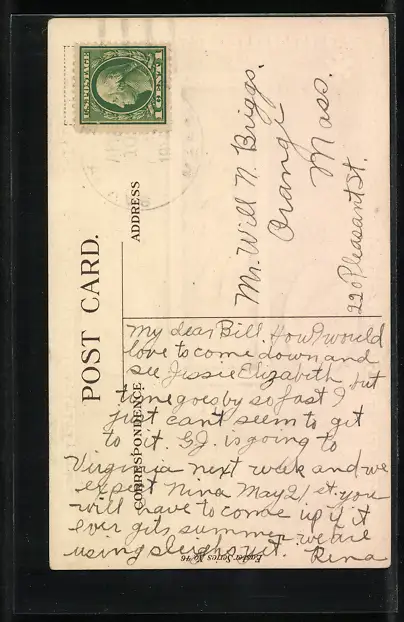 U.S. POSTAGE
1 CENT 1
POST CARD.
ADDRESS
CORRESPONDENCE
Mr. Will N. Briggs.
Orange
Mass.
220 Pleasant St.
My dear Bill. How I would
love to come down and
see Jessie Elizabeth but
time goes by so fast I
just can't seem to get
to it. G.J. is going to
Virginia next week and we
expect Nina May 21st. you
will have to come up if it
ever gets summer. we are
using sleighs yet. Rena
Easter Series No 46